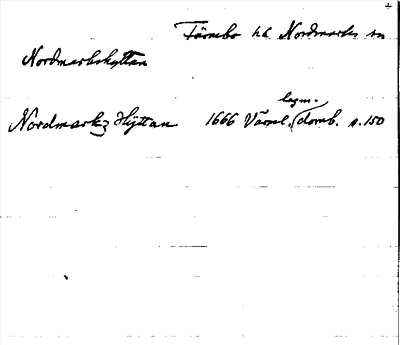 Färnebo hd. Nordmarks sn
Nordmarkshyttan
lagm.
Nordmarkz Hÿttan 1666 Värml. (domb. s. 150